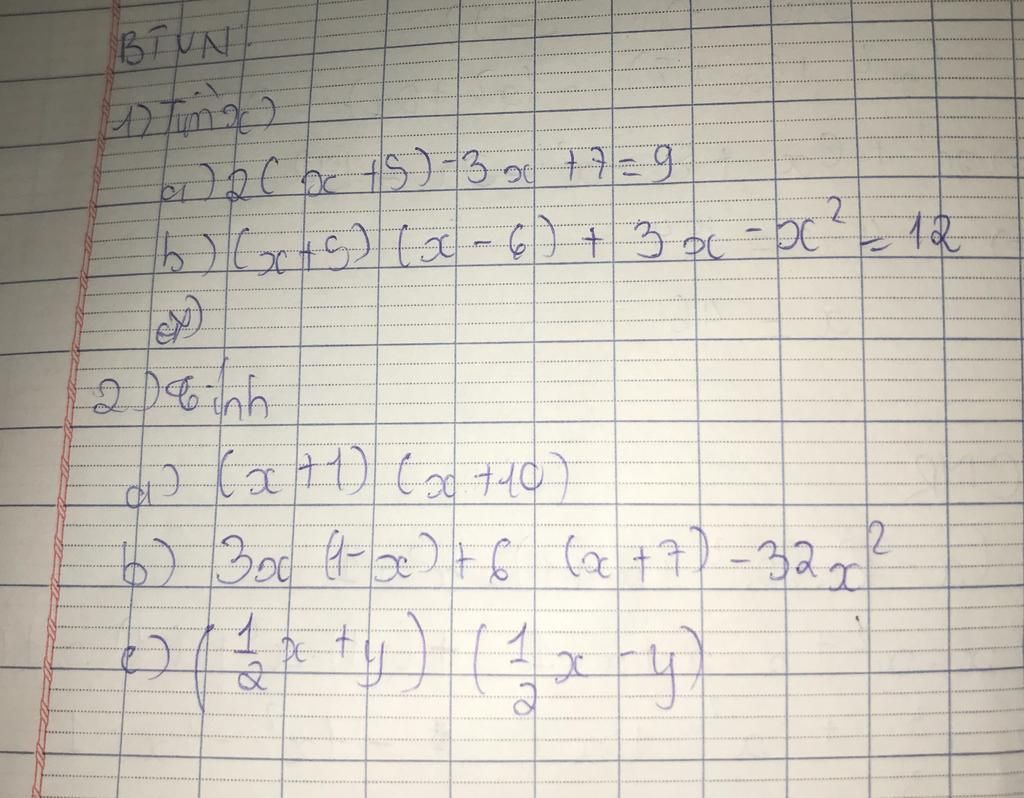 BTVN
1) Tìm x)
a) 2( x + 5) - 3x + 7 = 9
b) (x + 5) (x - 6) + 3x - x² = 12
2) Tính
a) (x + 1) (x + 10)
b) 3x (1 - x) + 6 (x + 7) - 32x²
c) (1/2 x + y) (1/2 x - y)